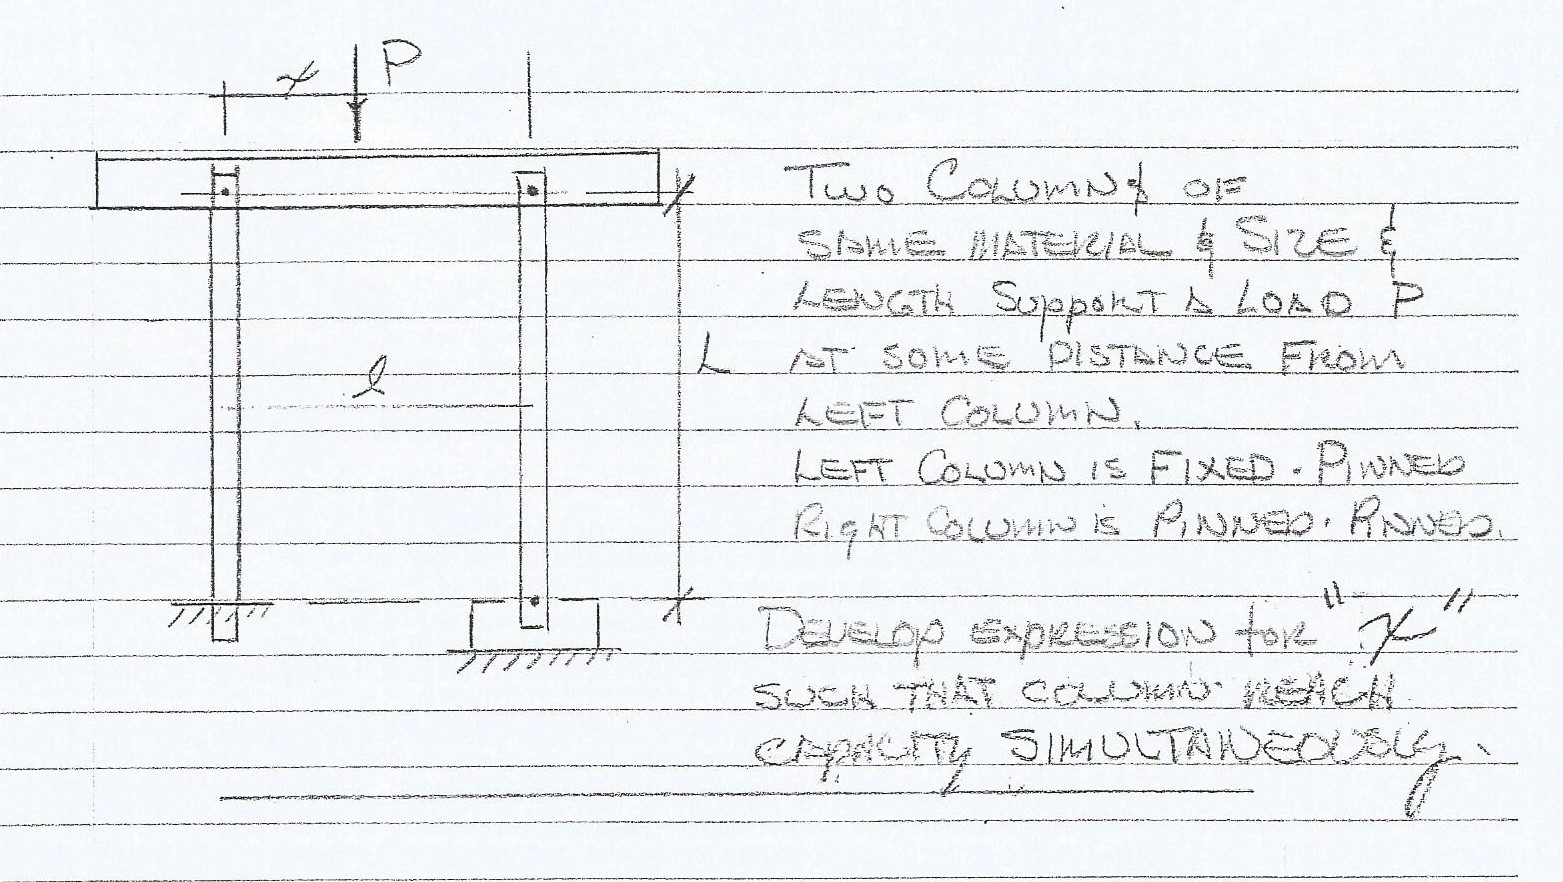 x P
Two Columns of
same material & size &
length support a load P
at some distance from
left column.
Left column is fixed-pinned
Right column is pinned-pinned.
l
L
Develop expression for "x"
such that column reach
capacity simultaneously.